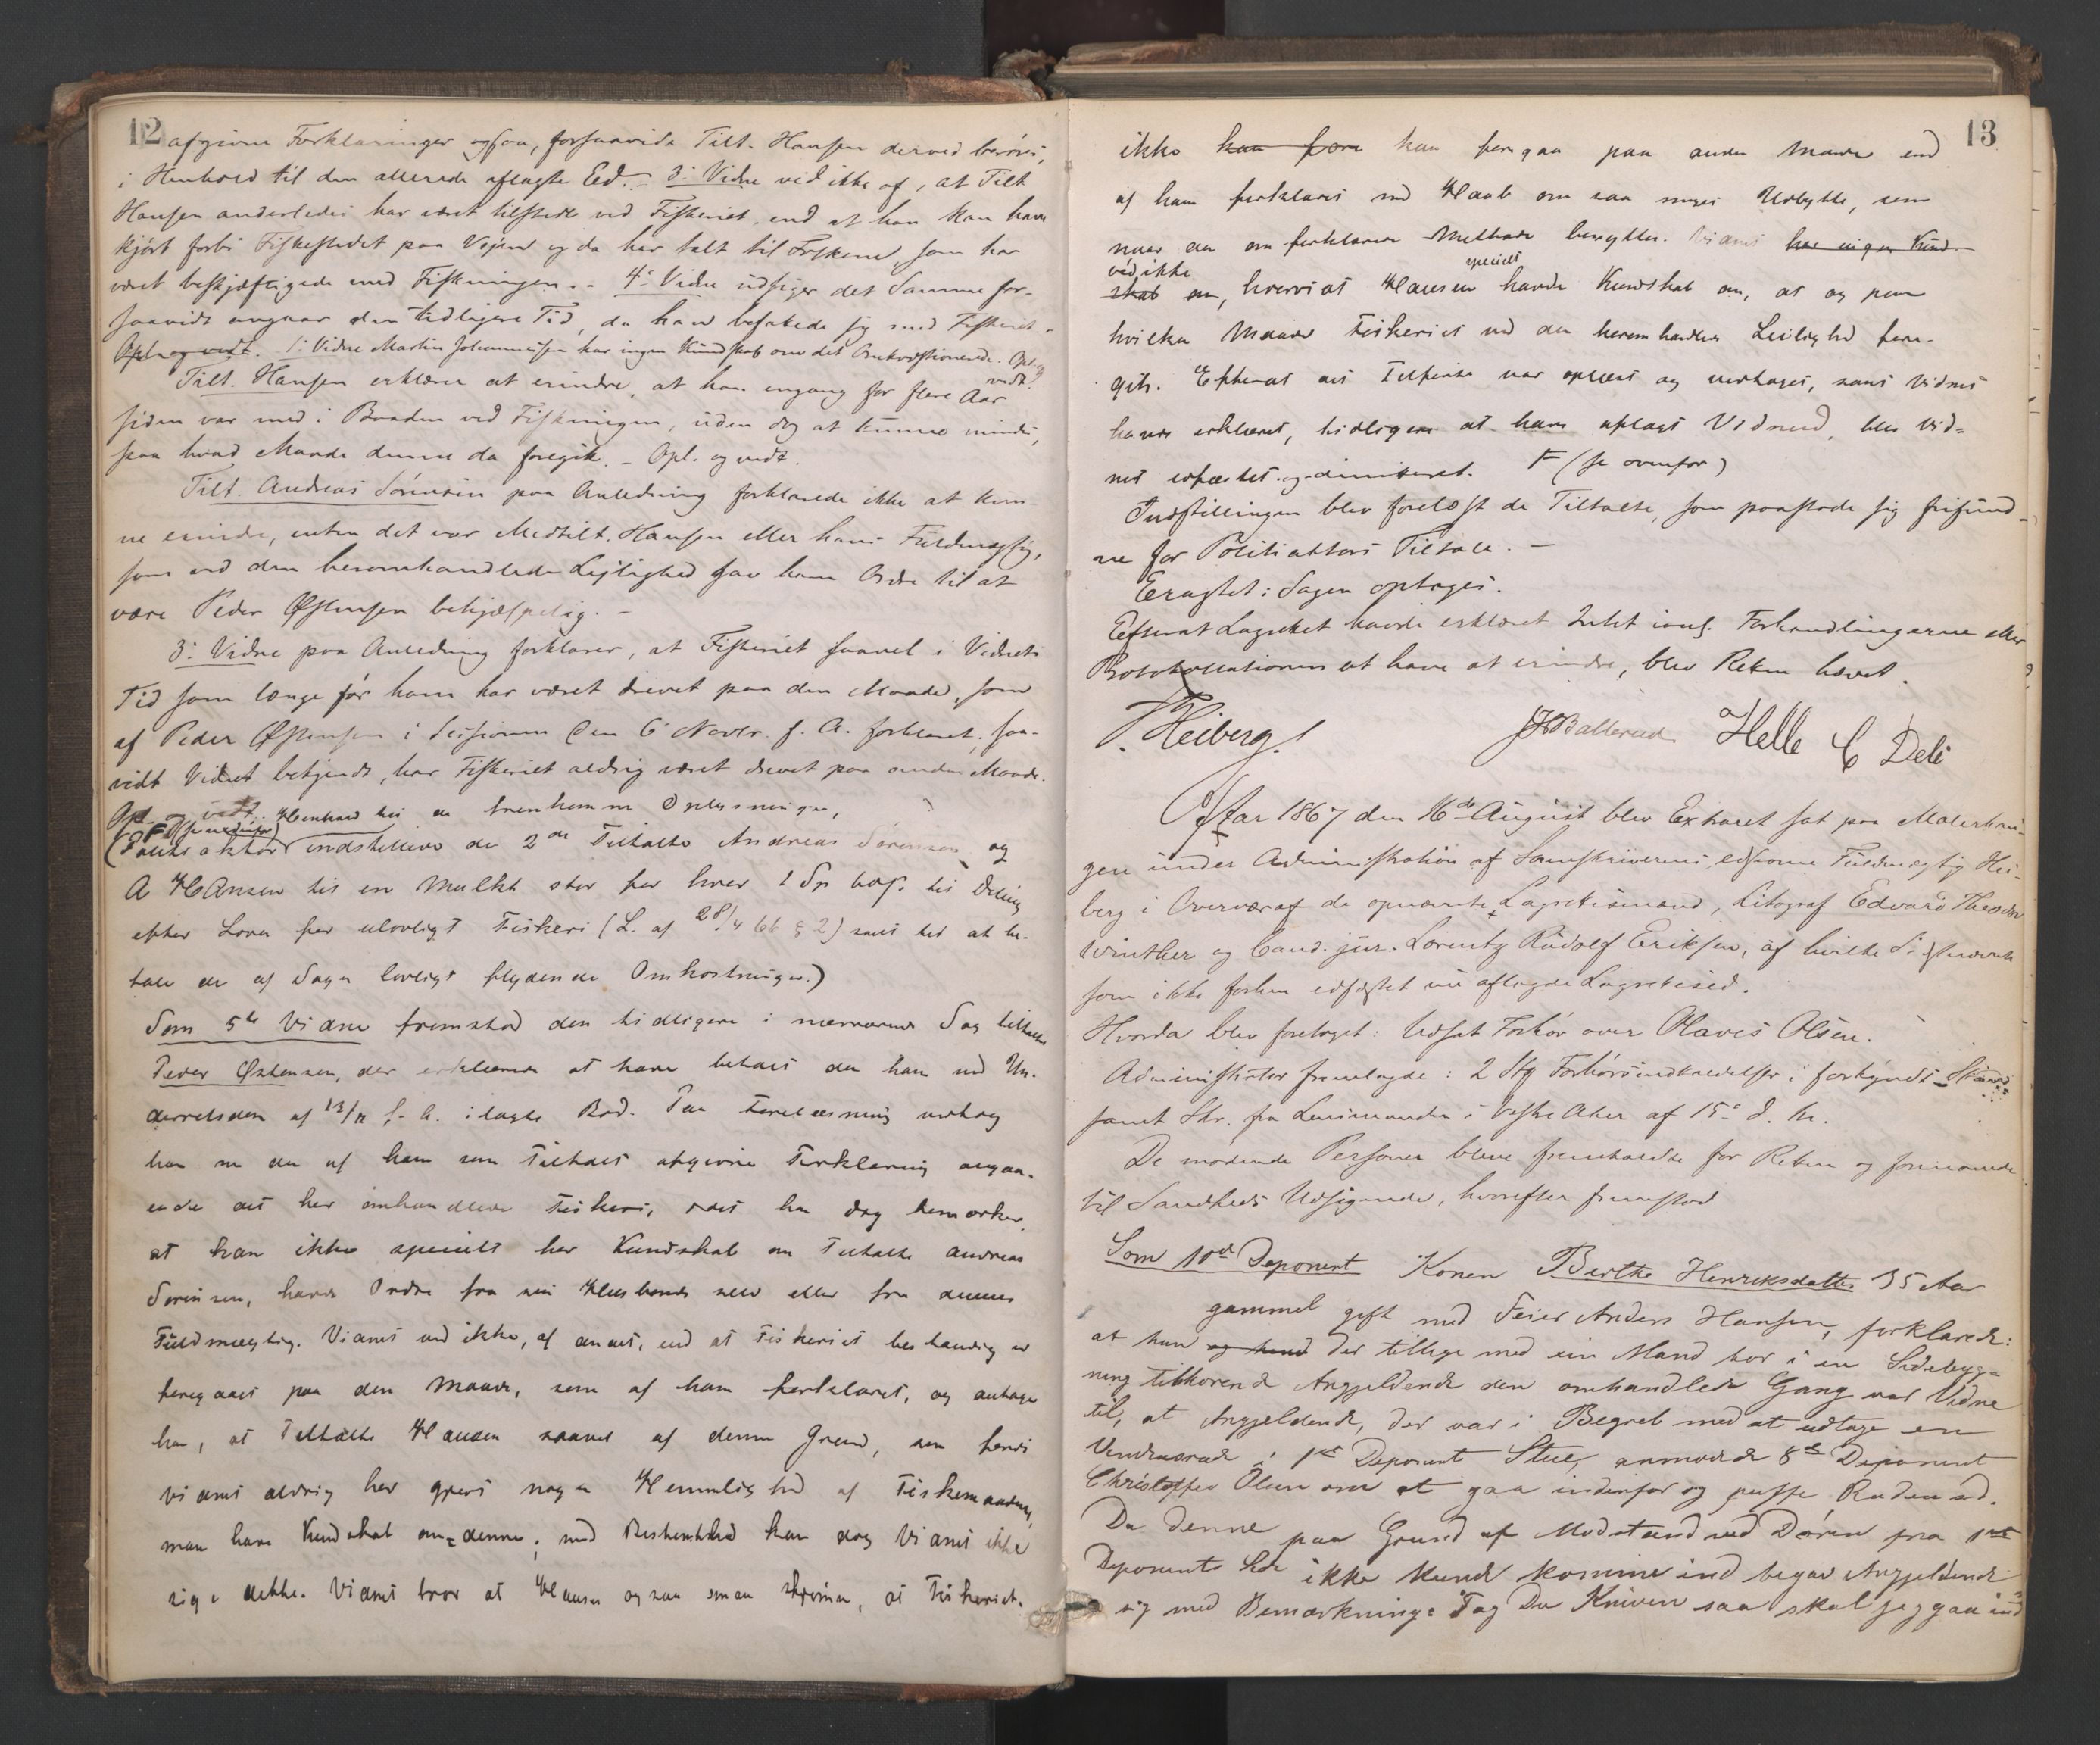 12
afgivne Forklaringer ogsaa, forsaavidt Tilt. Hansen derved berøres,
i Henhold til den allerede aflagte Ed. 3' Vidne ved ikke af, at Tilt
Hansen anderledes har været tilstede ved Fiskeriet, end at han kan have
kjørt forbi Fiskestedet paa Veien og da har talt til Folkene, som har
været beskjæftigede med Fiskningen. - 4' Vidne udsiger det Samme for-
saavidt angaar den tidligere Tid, da han befattede sig med Fiskeriet.
Opl. og vedt. 1' Vidne Martin Johannessen har ingen Kundskab om det Omkvæstionerede. Opl. og
vedt.
Tilt. Hansen erklærer at erindre, at han engang for flere Aar
siden var med i Baaden ved Fiskningen, uden dog at kunne mindes,
paa hvad Maade denne da foregik. - Opl. og vedt.
Tilt. Andreas Sørensen paa Anledning forklarede ikke at kun-
ne erindre, enten det var Medtilt. Hansen eller hans Fuldmægtig,
som ved den heromhandlede Leilighed gav ham Ordre til at
være Peder Østensen behjælpelig. -
3' Vidne paa Anledning forklarer, at Fiskeriet saavel i Vidnets
Tid som længe før ham har været drevet paa den Maade, som
af Peder Østensen i Sessionen den 6' Novbr. f. A. forklaret; saa-
vidt Vidnet bekjendt, har Fiskeriet aldrig været drevet paa anden Maade.
Opl. og vedt. Henhold til de fremkomne Oplysninger,
F (se nedenfor)
(Politiaktor indstillede de 2de Tiltalte Andreas Sørensen og
A Hansen til en Mulkt stor for hver 2 Sp til Deling
efter Loven for ulovligt Fiskeri (L. af 28/4 66 § 2) samt til at be-
tale de af Sagen lovligt flydende Omkostninger.)
Som 5te Vidne fremstod den tidligere i nærværende Sag tiltalte
Peder Østensen, der erklærede at have betalt den ham ved Un-
derretsdom af 13/11 f. A. ilagte Bod. Paa Forelæsning vedtog
han nu den af ham som Tiltalt afgivne Forklaring angaa-
ende det her omhandlede Fiskeri, idet han dog bemærker,
at han ikke specielt har Kundskab om Tiltalte Andreas
Sørensen, havde Ordre fra sin Husbonds selv eller fra dennes
Fuldmægtig. Vidnet ved ikke, af andet, end at Fiskeriet bestandig er
foregaaet paa den Maade, som af ham forklaret, og antager
han, at Tiltalte Hansen saavel af denne Grund, som fordi
Vidnet aldrig har gjort nogen Hemmelighed af Fiskemaaden,
maa have Kundskab om denne; med Bestemthed kan dog Vidnet ikke
sige dette. Vidnet tror at Hansen ogsaa maa skjønne, at Fiskeriet
13
ikke kan føre kan foregaa paa anden Maade end
af ham forklaret med Haab om saa meget Udbytte, som
naar den om forklarede Methode benyttes. Vidnet har ingen Kund-
ved ikke specielt
skab om, hvorvidt Hansen havde Kundskab om, at og paa
hvilken Maade Fiskeriet ved den heromhandlede Leilighed fore-
gik. Efterat det Tilførte var oplæst og vedtaget, samt Vidnet
havde erklæret, tidligere at have aflagt Vidneed, blev Vid-
net edfæstet og dimitteret. F (se ovenfor)
Indstillingen blev forelæst de Tiltalte, som paastode sig frifund-
ne for Politiaktors Tiltale. -
Eragtet: Sagen optages.
Efterat Lagrettet havde erklæret Intet imod Forhandlingerne eller
Protokollationen at have at erindre, blev Retten hævet.
Heiberg. JHBallerud Helle C Deli
Aar 1867 den 16de August blev Extraret sat paa Malerhau-
gen under Administration af Sorenskriverens edsvorne Fuldmægtig Hei-
berg i Overvær af de opnævnte Lagrettesmænd, Litograf Edvard Theodor
Winther og Cand. jur. Lorentz Rudolf Eriksen, af hvilke Sidstnævnte
som ikke forhen edfæstet nu aflagde Lagretteseed.
Hvorda blev foretaget: Udsat Forhør over Olaves Olsen.
Administrator fremlagde: 2 Stk Forhørsindkaldelser i forkyndt Stand
samt Skr. fra Lensmanden i Vestre Aker af 15' d. M.
De mødende Personer bleve fremkaldte for Retten og formanede
til Sandheds Udsigende, hvorefter fremstod
Som 10de Deponent Konen Berthe Henriksdatter 35 Aar
gammel gift med Feier Anders Hansen, forklarede:
at hun og hend der tillige med sin Mand bor i en Sidebyg-
ning tilhørende Angjeldende den omhandlede Gang var Vidne
til, at Angjeldende, der var i Begreb med at udtage en
Vinduesrude i 1ste Deponents Stue, anmodede 8de Deponent
Christoffer Olsen om at gaa indenfor og puffe Ruden ud.
Da denne paa Grund af Modstand ved Døren fra 1ste
Deponents Side ikke kunde komme ind begav Angjeldende
sig med Bemærkning: Tag Du Kniven saa skal jeg gaa ind